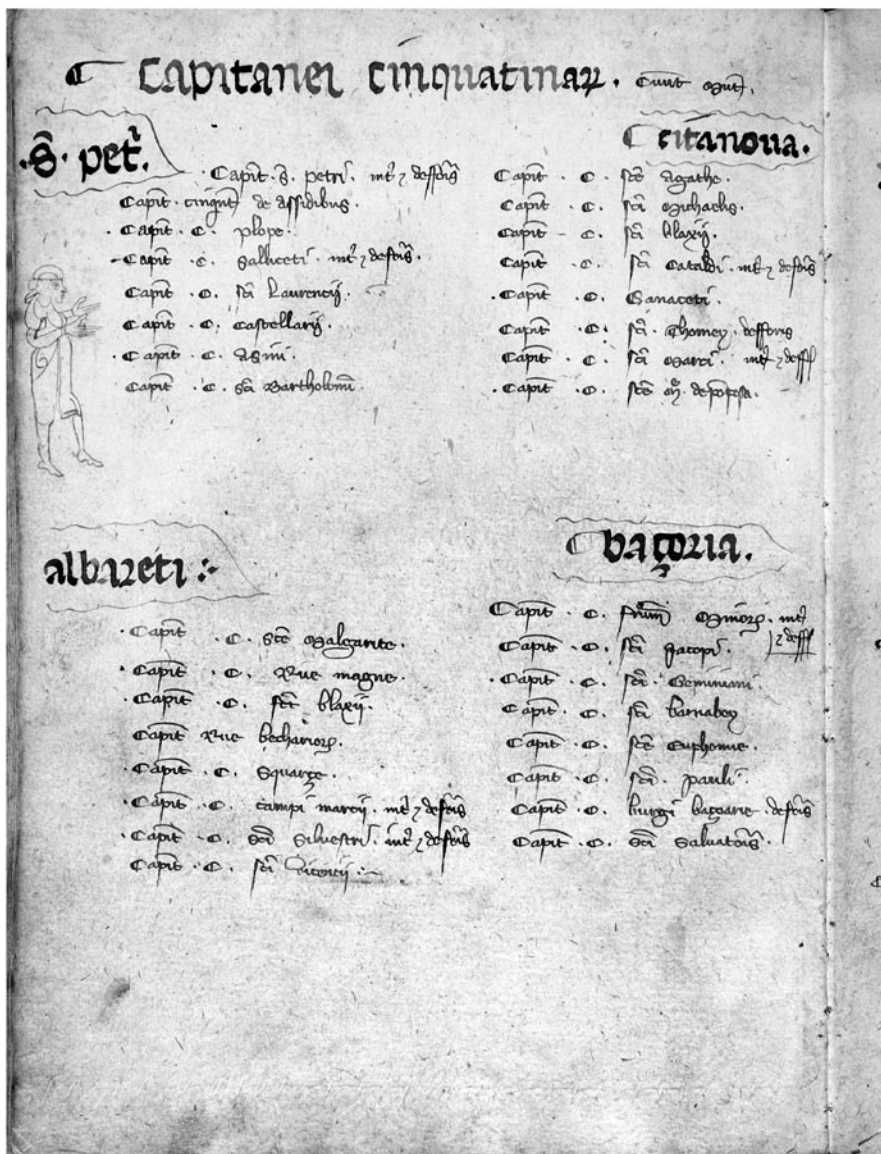 Capitanei cinquatinaꝝ. Ciuit̄ Mut̄.
.S̄. pet̄.
.Capit̄. S̄. petri. int̄ ⁊ deffoꝛis
Capit̄. cinq̄nt̄ de assidibus.
. Capit̄. C. plope.
. Capit̄. C. Salliceti. int̄ ⁊ defoꝛis.
Capit̄. C. sc̄i Laurencij.
Capit̄. C. Castellarij.
. Capit̄. C. Asini.
Capit̄. C. sc̄i Bartholom̄i.
citanoua.
Capit̄. C. sc̄e Agathe.
Capit̄. C. sc̄i Michaelis.
Capit̄ - C. sc̄i blaxij.
Capit̄. C. sc̄i Cataldi. int̄ ⁊ defoꝛis
. Capit̄. C. Ganaceti.
Capit̄. C. sc̄i. Thomey. defforis
Capit̄. C. sc̄i Marci. int̄ ⁊ deff
. Capit̄. C. sc̄e M̄. de poposa.
albareti :~
. Capit̄. C. sc̄e Malgarite.
. Capit̄. C. Rue magne.
. Capit̄. C. sc̄i blaxij.
Capit̄ Rue becharioꝝ.
. Capit̄. C. Squarçe.
. Capit̄. C. campi marcij. int̄ ⁊ defoꝛis
. Capit̄. C. Sc̄i Siluestri. int̄ ⁊ defoꝛis
Capit̄. C. sc̄i :~
baçoria.
Capit̄. C. fr̄um Minoꝝ. int̄
⁊ deff
. Capit̄. C. sc̄i Jacopi.
. Capit̄. C. sc̄i. Geminiani.
Capit̄. C. sc̄i barnaboy
Capit̄. C. sc̄e Euphomie.
Capit̄. C. sc̄i. pauli.
Capit̄. C. burgi baçoarie. defoꝛis
Capit̄. C. Sc̄i Saluatoꝛis.